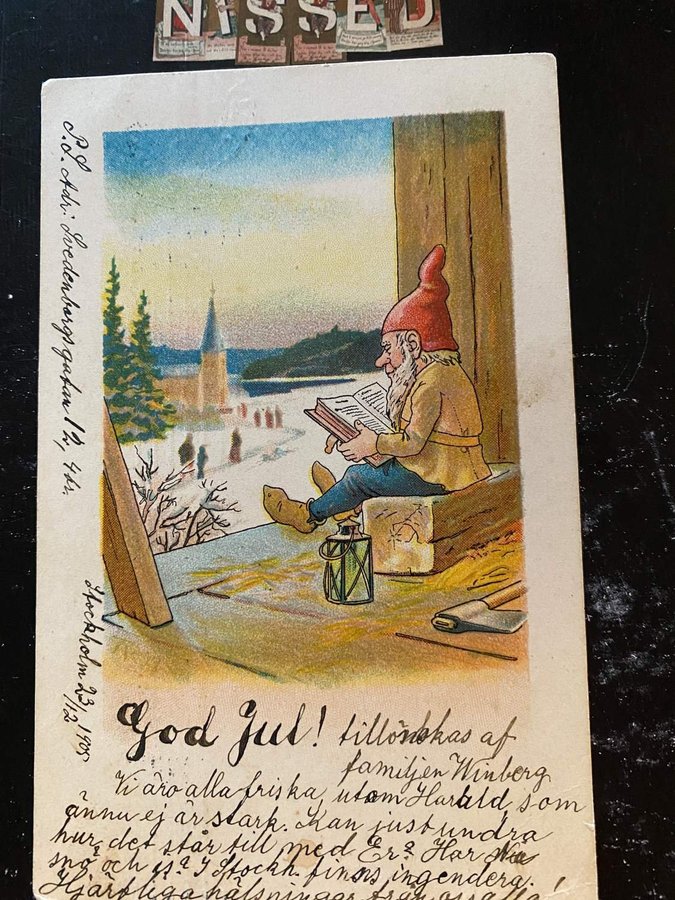 NISSED
P.S. Adr: Svedenborgsgatan 12, 4 tr.
Stockholm 23/12 1905
God Jul! tillönskas af
familjen Winberg
Vi äro alla friska, utom Harald, som
ännu ej är stark. Kan just undra
hur det står till med Er? Har Nu
snö och is? I Stockh. finns ingendera.
Hjärtliga hälsningar från oss alla!